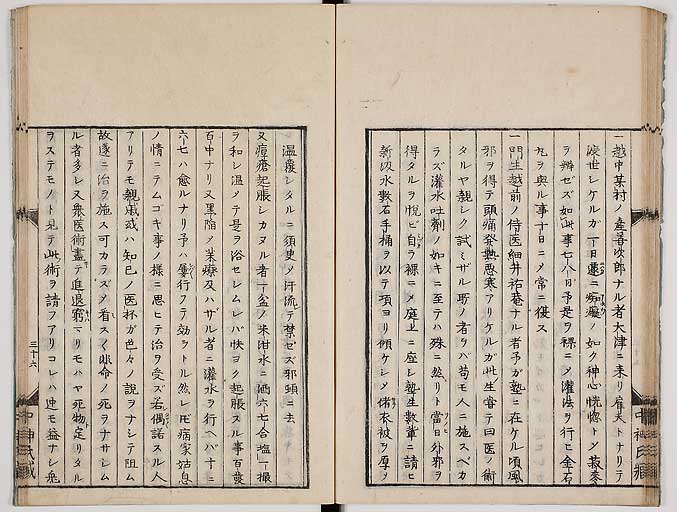 一越中某村ノ産善次郎ナル者大津ニ来リ肩夫トナリテ
渡世シケルガ一日遽ニ痴癡ノ如ク神心恍惚トノ菽麥
ヲ辨ゼズ如此事七八日予是ヲ裸ニメ灌法ヲ行ヒ金石
丸ヲ與ル事十日ニメ常ニ復ス
一門生越前ノ侍医細井祐庵ナル者予ガ塾ニ在ケル頃風
邪ヲ得テ頭痛発熱悪寒アリケルガ此生嘗テ曰医ノ術
タルヤ親シク試ミザル所ノ者ヲバ苟モ人ニ施スベカ
ラズ灌水吐剤ノ如キニ至テハ殊ニ然リト當日外邪ヲ
得タルヲ悦ビ自ラ裸ニメ庭上ニ座シ塾生數輩ニ請ヒ
新汲水數石手桶ヲ以テ項ヨリ傾ケシメ偖衣被ヲ厚ク
温覆シタルニ須臾ノ汗流テ禁ゼズ邪頓ニ去
又痘瘡起脹シカヌル者一盆ノ米泔水ニ酒六七合塩一撮
ヲ和シ温メテ是ヲ浴セシムレバ快ヨク起脹スル事百發
百中ナリ又黒陥ノ薬療及ハザル者ニ灌水ヲ行ヘバ十ニ
六七ハ愈ルナリ予ハ屢行フテ効ヲトル然レ𪜈病家姑息
ノ情ニテムゴキ事ノ様ニ思ヒテ治ヲ受ズ若偶諾スル人
アリテモ親戚或ハ知己ノ医杯ガ色々ノ説ヲナシテ阻ム
故遂ニ治ヲ施ス可カラズメ看ス〱非命ノ死ヲナサシム
ル者多シ又衆医術盡テ進退窮マリモハヤ死物定リタル
ヲステモノト見テ此術ヲ請フアリコレハ迚モ益ナシ免
三十六
中神氏蔵
中神氏蔵